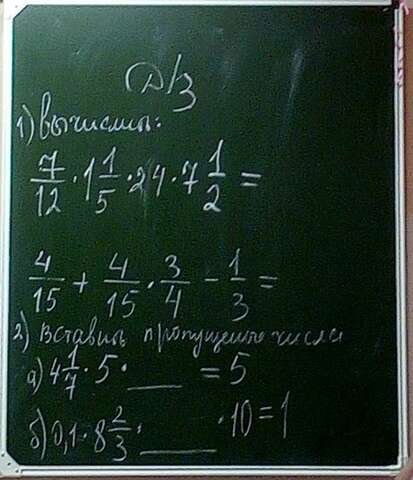 Д/З
1) Вычислить:
7/12 · 1 1/5 · 24 · 7 1/2 =
4/15 + 4/15 · 3/4 - 1/3 =
2) Вставить пропущенные числа
а) 4 1/7 · 5 · ___ = 5
б) 0,1 · 8 2/3 · ___ · 10 = 1